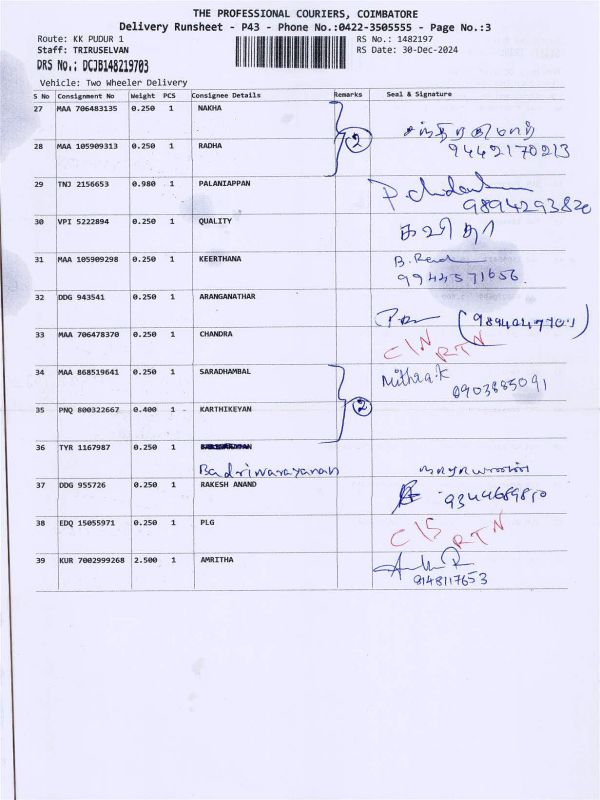 THE PROFESSIONAL COURIERS, COIMBATORE
Delivery Runsheet - P43 - Phone No.:0422-3505555 - Page No.:3
Route: KK PUDUR 1 RS No.: 1482197
Staff: TRIRUSELVAN RS Date: 30-Dec-2024
DRS No.: DCJB148219703
Vehicle: Two Wheeler Delivery
S No Consignment No Weight PCS Consignee Details Remarks Seal & Signature
27 MAA 706483135 0.250 1 NAKHA
28 MAA 105909313 0.250 1 RADHA 2 9442170213
29 TNJ 2156653 0.980 1 PALANIAPPAN 9894293820
30 VPI 5222894 0.250 1 QUALITY கவிதா
31 MAA 105909298 0.250 1 KEERTHANA B. 9944571656
32 DDG 943541 0.250 1 ARANGANATHAR
33 MAA 706478370 0.250 1 CHANDRA C/N RTN
34 MAA 868519641 0.250 1 SARADHAMBAL Mithaa.K 0903885091
35 PNQ 800322667 0.400 1 KARTHIKEYAN 2
36 TYR 1167987 0.250 1
Badrinarayanan
37 DDG 955726 0.250 1 RAKESH ANAND 9344689810
38 EDQ 15055971 0.250 1 PLG C/S RTN
39 KUR 7002999268 2.500 1 AMRITHA 9148117653